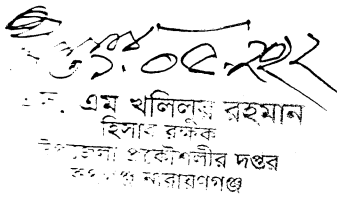 এম খলিলুর রহমান
হিসাব রক্ষক
উপজেলা প্রকৌশলীর দপ্তর
রূপগঞ্জ নারায়ণগঞ্জ